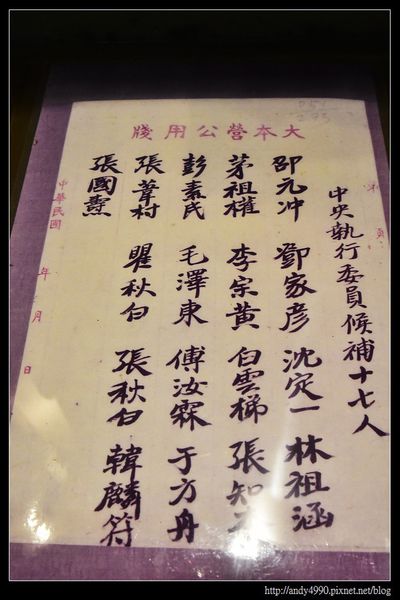 大本營公用牋
中央執行委員候補十七人
邵元冲 鄧家彥 沈定一 林祖涵
茅祖權 李宗黃 白雲梯 張知
彭素民 毛澤東 傅汝霖 于方舟
張葦村 瞿秋白 張秋白 韓麟符
張國燾
中華民國 年 月 日
http://andy4990.pixnet.net/blog